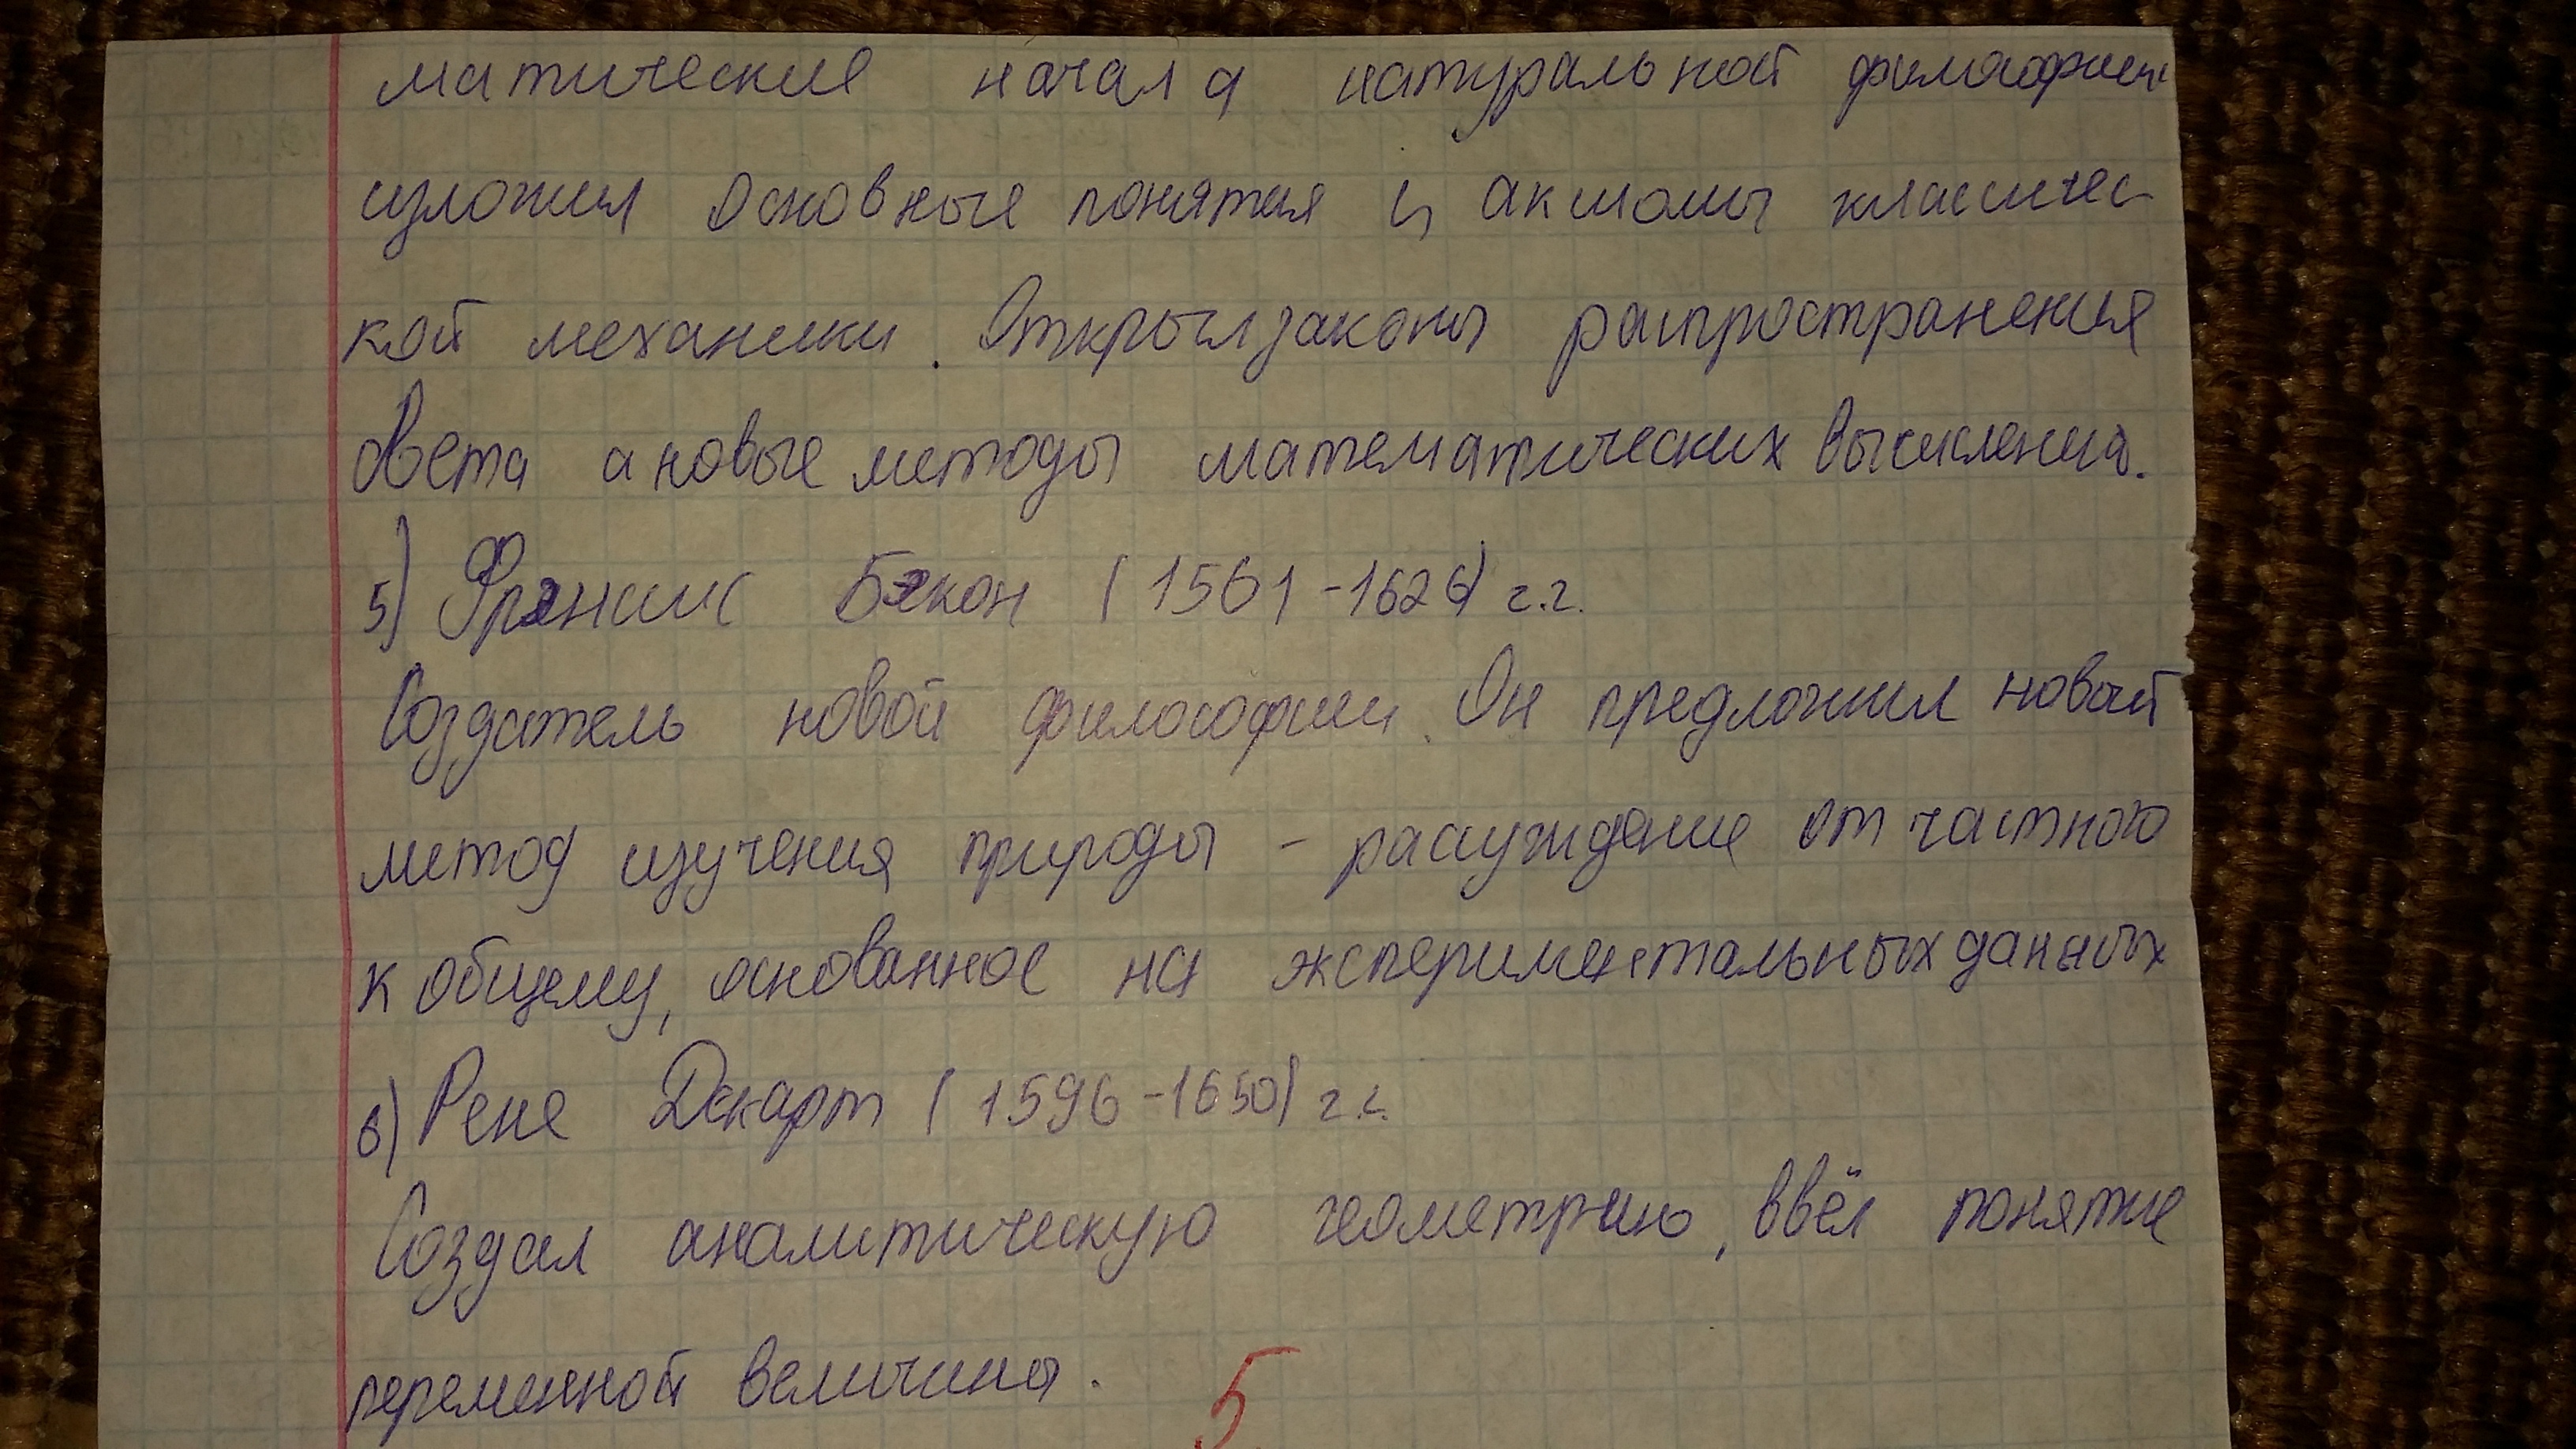 матические начала натуральной философии
изложил основные понятия и аксиомы классичес
кой механики. Открыл законы распространения
света а новые методы математических вычислений.
5) Фрэнсис Бэкон (1561-1626) г.г.
Создатель новой философии. Он предложил новый
метод изучения природы - рассуждение от частного
к общему, основанное на экспериментальных данных
6) Рене Декарт (1596-1650) г.г.
Создал аналитическую геометрию, ввёл понятие
переменной величины.
5